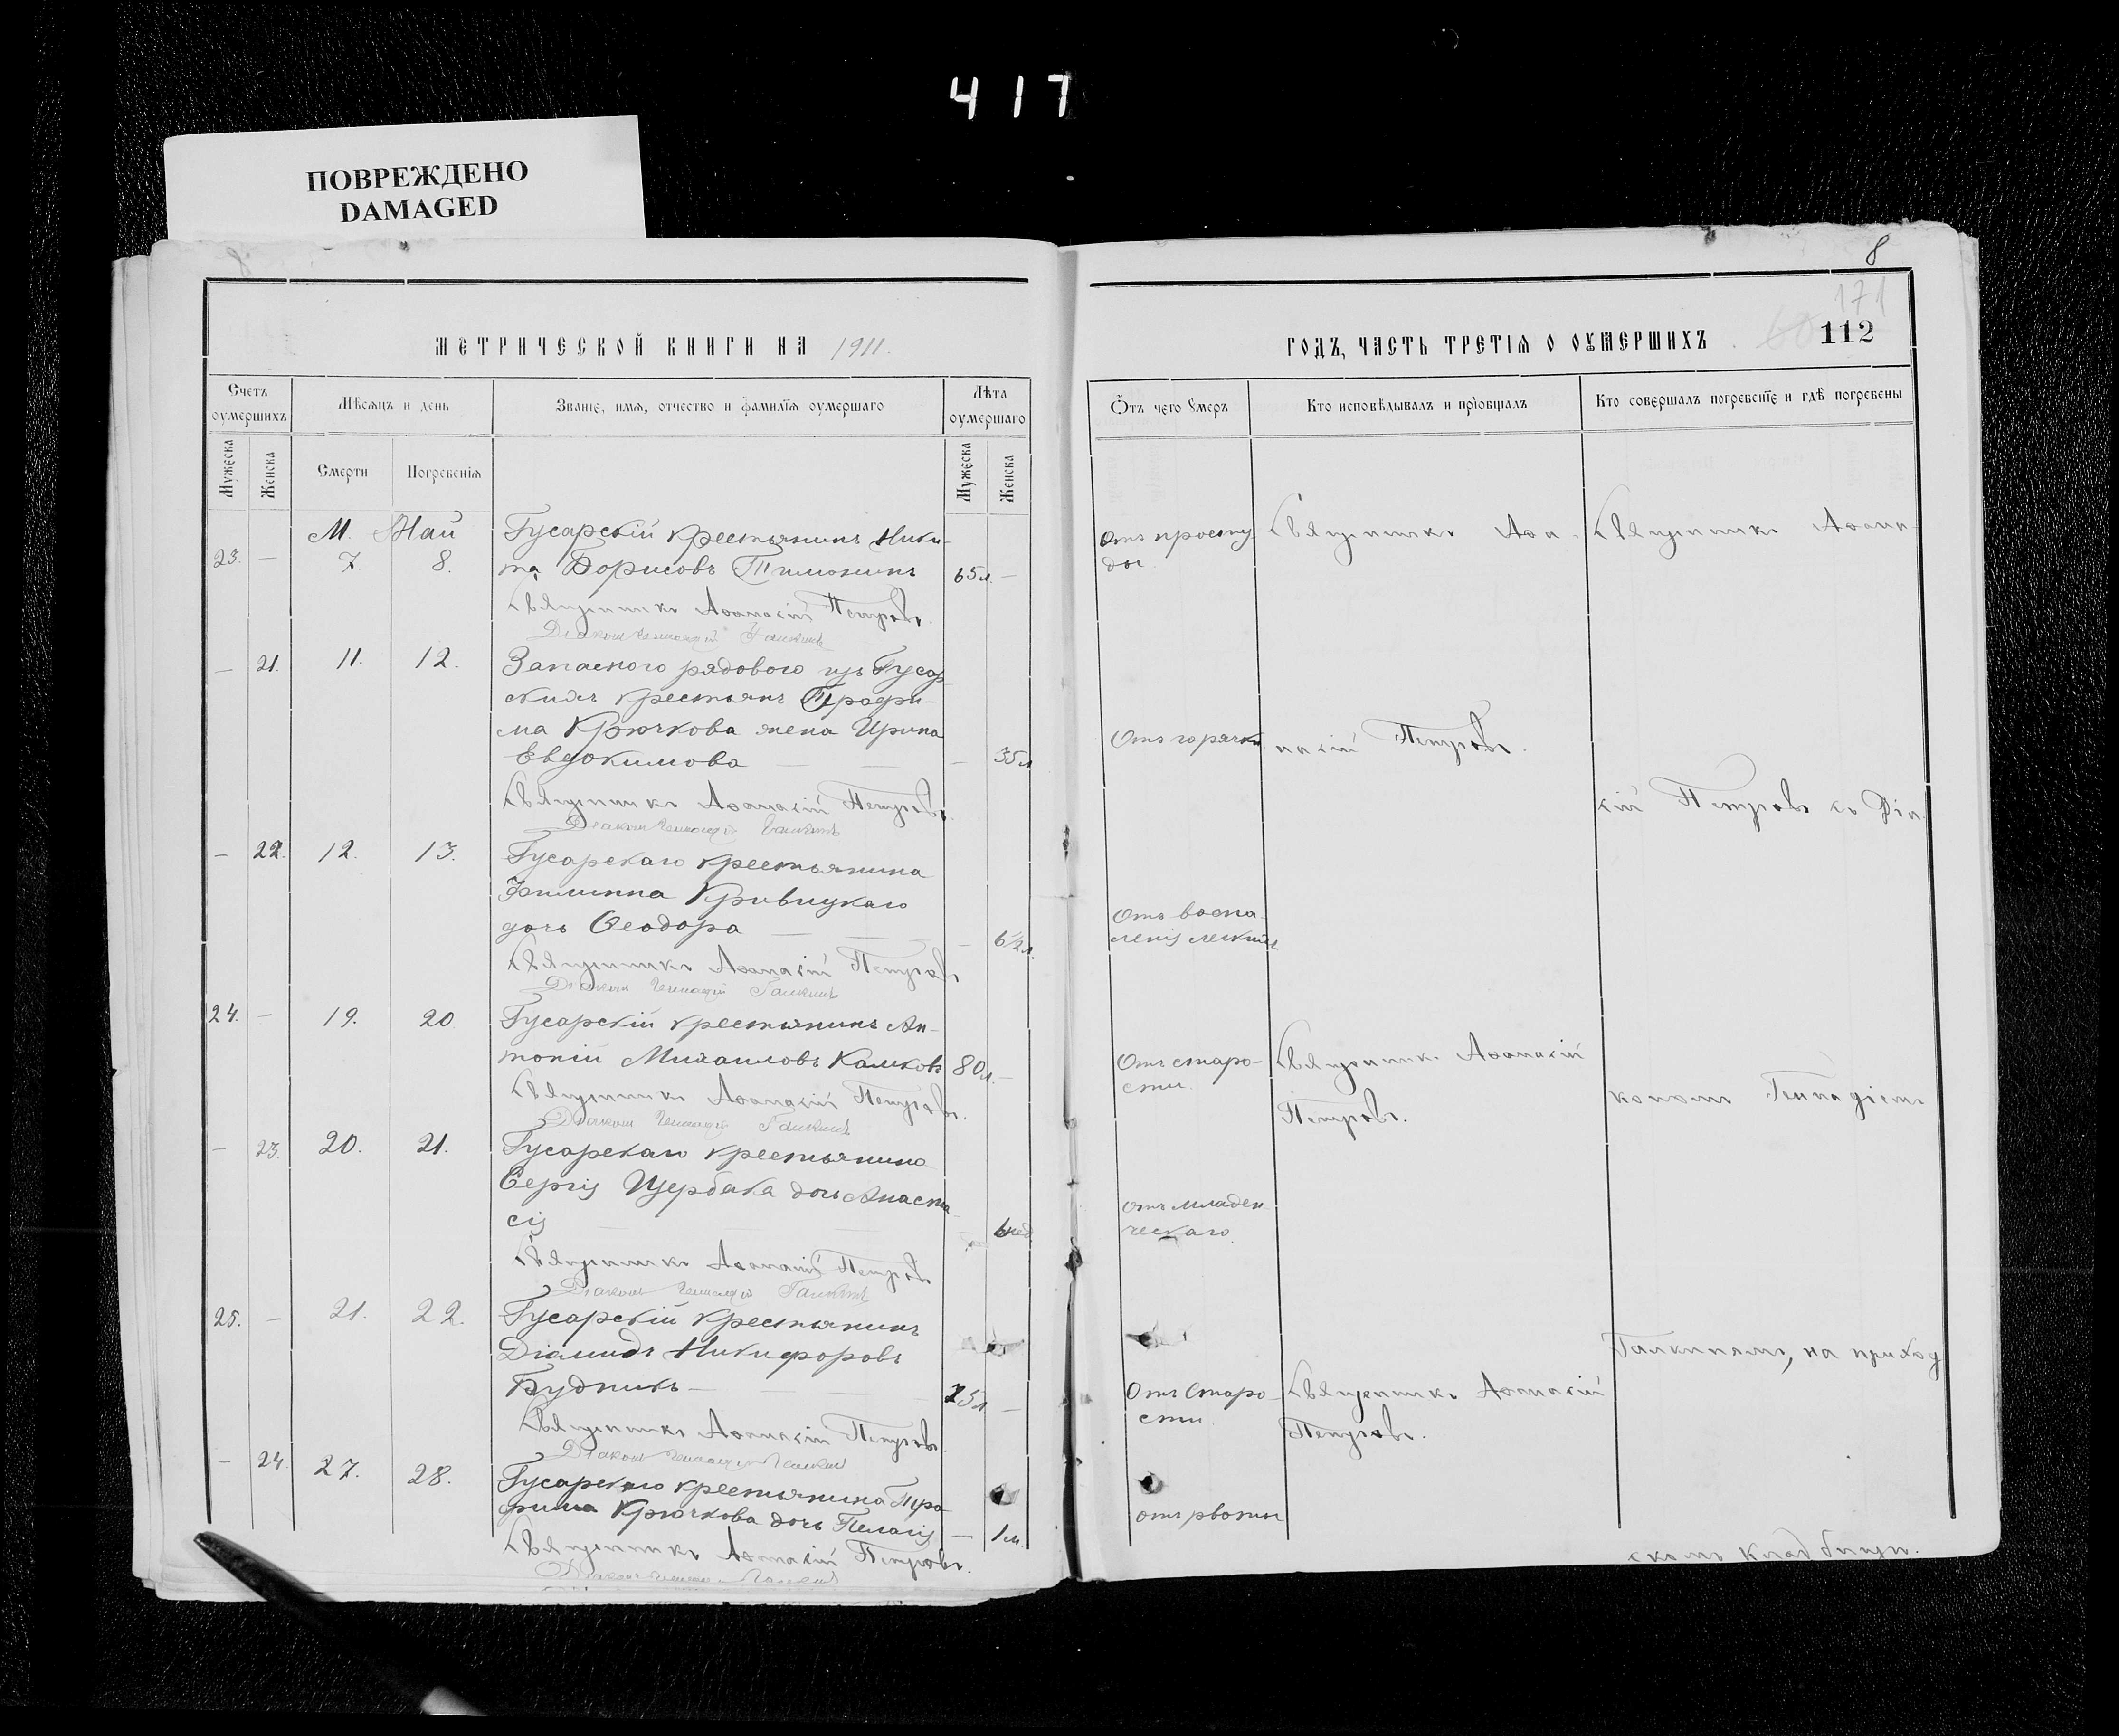 417
ПОВРЕЖДЕНО
DAMAGED
8
171
112
МЕТРИЧЕСКОЙ КНИГИ НА 1911.
ГОДЪ, ЧАСТЬ ТРЕТІЯ О ОУМЕРШИХЪ
Счетъ оумершихъ
Мѣсяцъ и день
Званіе, имя, отчество и фамилія оумершаго
Лѣта оумершаго
Ѿтъ чего оумеръ
Кто исповѣдывалъ и пріобщалъ
Кто совершалъ погребеніе и гдѣ погребены
Мужеска
Женска
Смерти
Погребенія
Мужеска
Женска
М. Май
23. — 7. 8.
Гусарскій крестьянинъ Ники-
та Борисовъ Тимонинъ 65 л. —
Священникъ Аѳанасій Петровъ.
Діаконъ Геннадій Галкинъ
— 21. 11. 12.
Запасного рядового изъ Гусар-
скихъ крестьянъ Трофи-
ма Крючкова жена Ирина
Евдокимова — — — 35 л
Священникъ Аѳанасій Петровъ.
Діаконъ Геннадій Галкинъ
— 22. 12. 13.
Гусарскаго крестьянина
Филиппа Кривицкаго
дочь Ѳеодора — — — 6 1/2 л.
Священникъ Аѳанасій Петровъ
Діаконъ Геннадій Галкинъ
24. — 19. 20
Гусарскій крестьянинъ Ан-
тоній Михаиловъ Камковъ 80 л. —
Священникъ Аѳанасій Петровъ.
Діаконъ Геннадій Галкинъ
— 23. 20. 21.
Гусарскаго крестьянина
Сергія Щербака дочь Анаста-
сія — — 6 нед.
Священникъ Аѳанасій Петровъ
Діаконъ Геннадій Галкинъ
25. — 21. 22.
Гусарскій крестьянинъ
Діамидъ Никифоровъ
Будникъ — — — 75 л —
Священникъ Аѳанасій Петровъ
Діаконъ Геннадій Галкинъ
— 24. 27. 28.
Гусарскаго крестьянина Тро-
фима Крючкова дочь Пелагія — 1 м.
Священникъ Аѳанасій Петровъ.
Діаконъ Геннадій Галкинъ
Отъ просту
ды.
Отъ горячки
Отъ воспа-
ленія легкихъ
Отъ старо-
сти.
Отъ младен-
ческаго.
Отъ старо-
сти
отъ рвоты
Священникъ Аѳа-
насій Петровъ.
Священникъ Аѳанасій
Петровъ.
Священникъ Аѳанасій
Петровъ.
Священникъ Аѳана-
сій Петровъ съ Діа-
кономъ Геннадіемъ
Галкинымъ, на приход
скомъ кладбищѣ.